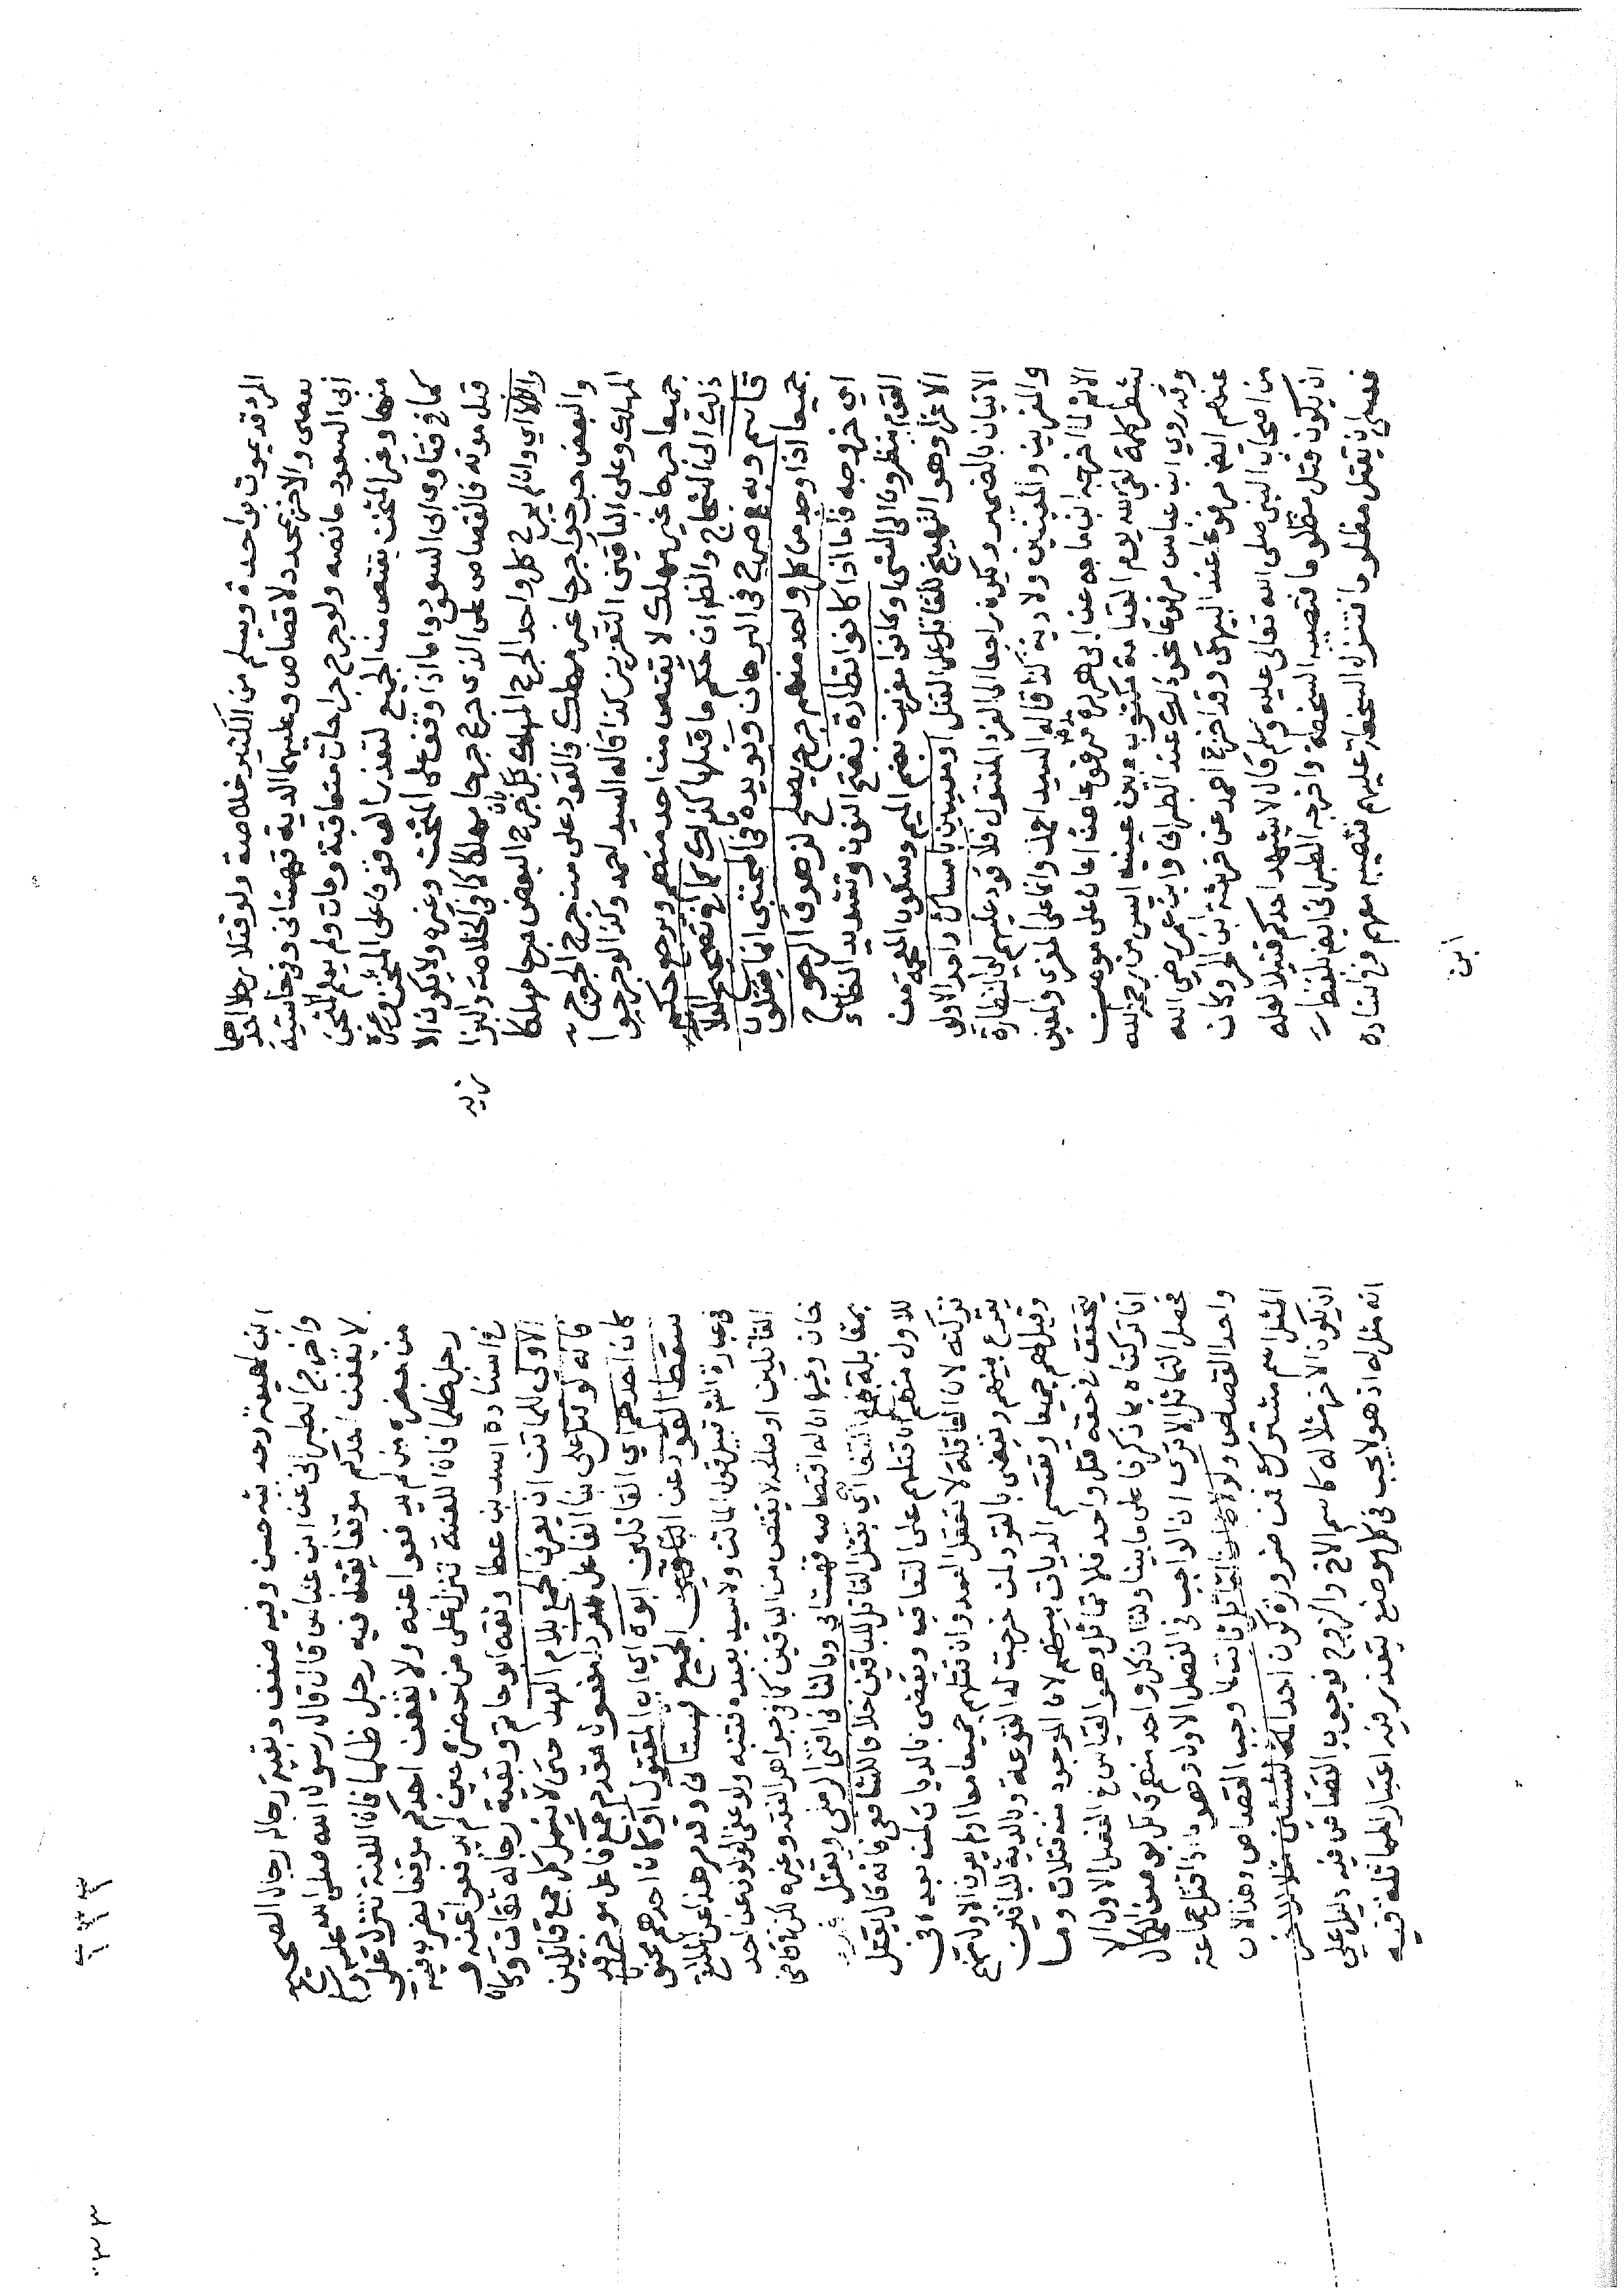 المرء قد يموت بواحدة ويسلم من الكثير خلاصة ولو قتلا رجلا احدهما
بعصى والاخر بمحدد لا قصاص وعليهما الدية قهستاني وفي حاشية
ابي السعود ما نصه ولو جرح جراحات متعاقبة ومات ولم يعلم المثخن
منها وغير المثخن يقتص من الجميع لتعذر الوقوف على المثخن وغيره
كما في فتاوى ابي السعود واما اذا وقف على المثخن وغيره ولا يكون الا
قبل موته فالقصاص على الذي جرح جرحا مهلكا كما في الخلاصة والبزا
زيه
والا اي وان لم يجرح كل واحد الجرح المهلك بان جرح البعض جرحا مهلكا
والبعض جرحوا جرحا غير مهلك فالقود على من جرح الجرح
المهلك وعلى الباقين التعزير كذا قاله السيد احمد وكذا لو جرحوا
جميعا جرحا غير مهلك لا يقتص من احد منهم ويرجع حكم
ذلك الى الشجاج والظ ان حكم ما قبلها كذلك كما في تصحيح العلا
قاسم وبه صرح في البرهان ويويده ما في المجتبى انما يقتلون
جميعا اذا وجد من كل واحد منهم جرح يصلح لزهوق الروح
اي خروجه فاما اذا كانوا نظارة بفتح النون وتشديد الظاء
القوم ينظرون الى الشي او كانوا مغرين بضم الميم وسكون المعجمة من
الاغرا وهو التهييج للقاتل على القتل او معينين بامساك واحد الاولى
الاتيان بالضمير ويكون راجعا الى الفرد المقتول فلا قود عليهم اي النظارة
والمغرين والمعينين ولا دية كذا قاله السيد احمد وانما على المغري والمعين
الاثم لما اخرجه ابن ماجه عن ابي هريرة مرفوعا من اعان على مومن
بشطر كلمة لقي الله يوم القيامة مكتوب بين عينيه ايس من رحمة الله
وقد روي ابن عباس مرفوعا نحو ذلك عند الطبراني وابن عمر رضي الله
عنهم ايضا مرفوعا عند البيهقي وقد اخرج احمد عن خرشة ابن الحر وكان
من اصحاب النبي صلى الله تعالى عليه وسلم قال لا يشهد احدكم قتيلا لعله
ان يكون قتل مظلوما فتصيبه السخطة واخرجه الطبراني ايضا بلفظ
فعسى ان يقتل مظلوما فتنزل السخطة عليهم فتصيبه معهم في اسناده
ابن
ابن لهيعة وحديثه حسن وفيه ضعف وبقية رجاله رجال الصحيح
واخرج الطبراني عن ابن عباس قال قال رسول الله صلى الله عليه وسلم
لا يقفن احدكم موقفا يقتل فيه رجل ظلما فان اللعنة تنزل على
من حضره حين لم يدفعوا عنه ولا يقفن احدكم موقفا يضرب فيه
رجل ظلما فان اللعنة تنزل على من حضره حين لم يدفعوا عنه و
في اسناده اسد بن عطا وثقه ابو حاتم وبقية رجاله ثقات وكان
الاولى للماتن ان يعرف الجمع بلام العهد حتى لا يشمل كل جمع قاتلين
قاله لو قتل على بنا الفاعل فرد مفعول مقدم جمع فاعل موخر وقد
كان احدهم اي القاتلين ابوه اي اب المقتول او كان احدهم مجنو
سقط القود عن الباقين الجميع قهستاني وقد مر هذا عن الملتقى
في عبارة الشارح قبيل قول الماتن ولا سيد بعبده فتنبه ولو عفى الولي عن احد
القاتلين او صالحه لا يقتص من الباقين كما في جواهر الفقه وغيره لكن في قاضي
خان وغيره ان له اقتصاصه قهستاني وبالثاني افتى الرملي ويقتل
بمقابلة جمع اكتفا اي يقتل القاتل للباقين خلافا للشافعي فانه قال يقتل
للاول منهم ان قتلهم على التعاقب ويقضى بالديات لمن بعده في
تركته لان العاقلة لا تعقل العمد وان قتلهم جميعا معا او لم يعرف الاول منهم
يقرع بينهم ويقضى بالقود لمن خرجت له القرعة وبالدية للباقين
وقيل لهم جميعا وتقسم الديات بينهم لان الموجود منه قتلات وما
يتحقق في حقه قتل واحد فلا تماثل وهو القياس في الفصل الاول الا
انا تركناه بما ذكرنا على ما بينا ولنا ان كل واحد منهم قاتل بوصف الكمال
فحصل التماثل الا ترى ان الواجب في الفصل الاول وهو اذا قتل جماعة
واحدا القصاص ولولا ان التماثل ثابت لما وجب القصاص وهذا لان
المثل اسم مشترك فمن ضرورة كون احد الشيئين مثلا للاخر
ان يكون الاخر مثلا له كاسم الاخ والزوج فوجوب القصاص فيه دليل على
انه مثل له اذ هو لا يجب في كل موضع يتعذر فيه اعتبار المماثلة فيه